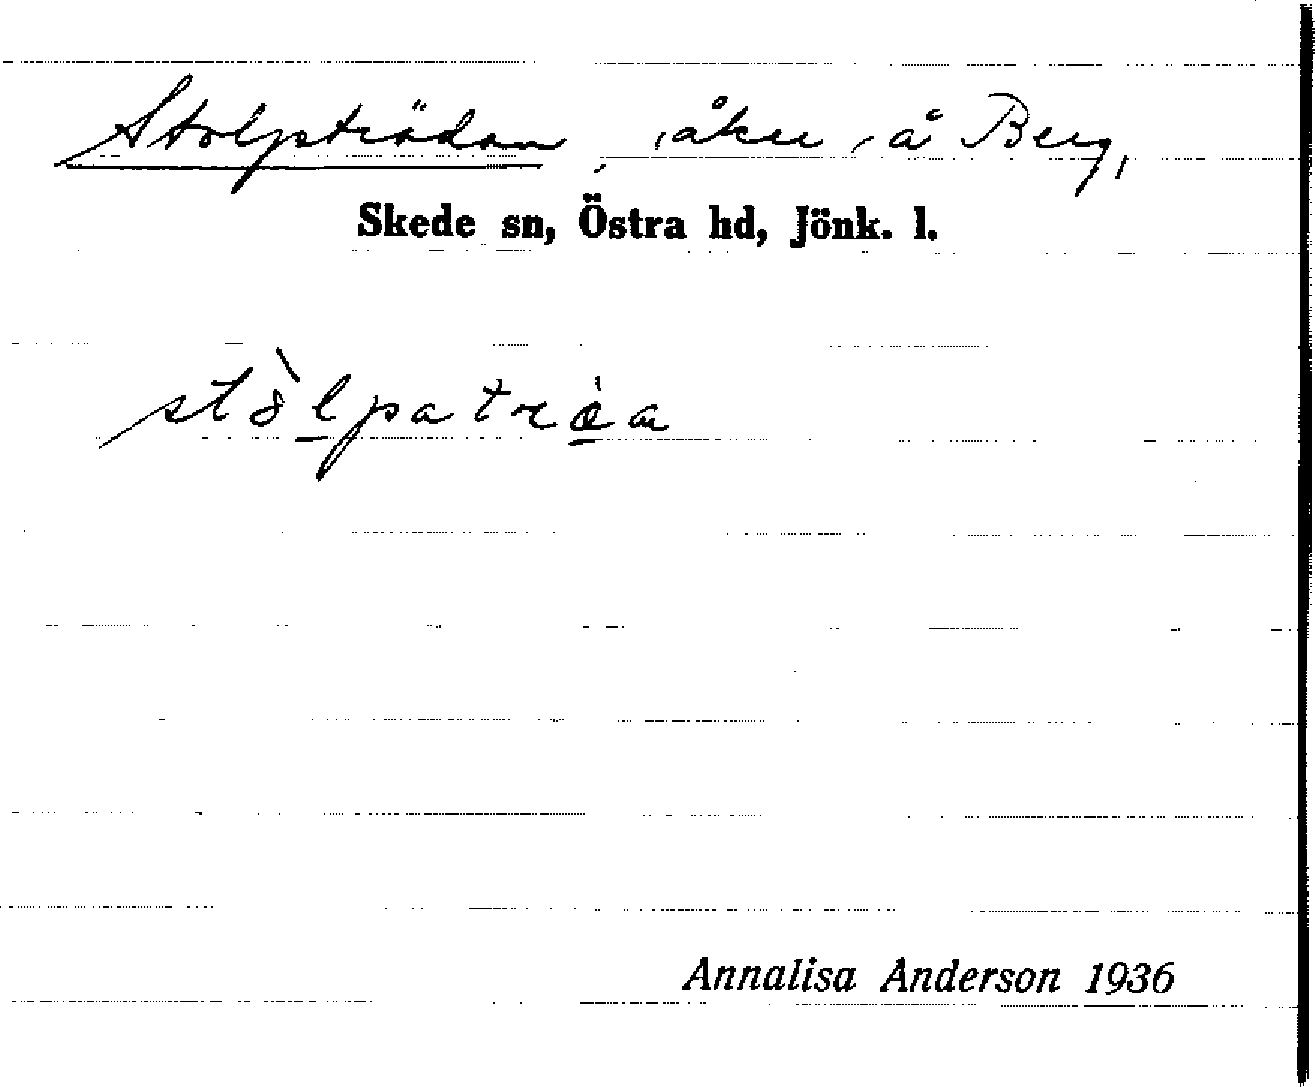 Stolpträdan, åker å Berg,
Skede sn, Östra hd, Jönk. l.
Annalisa Anderson 1936